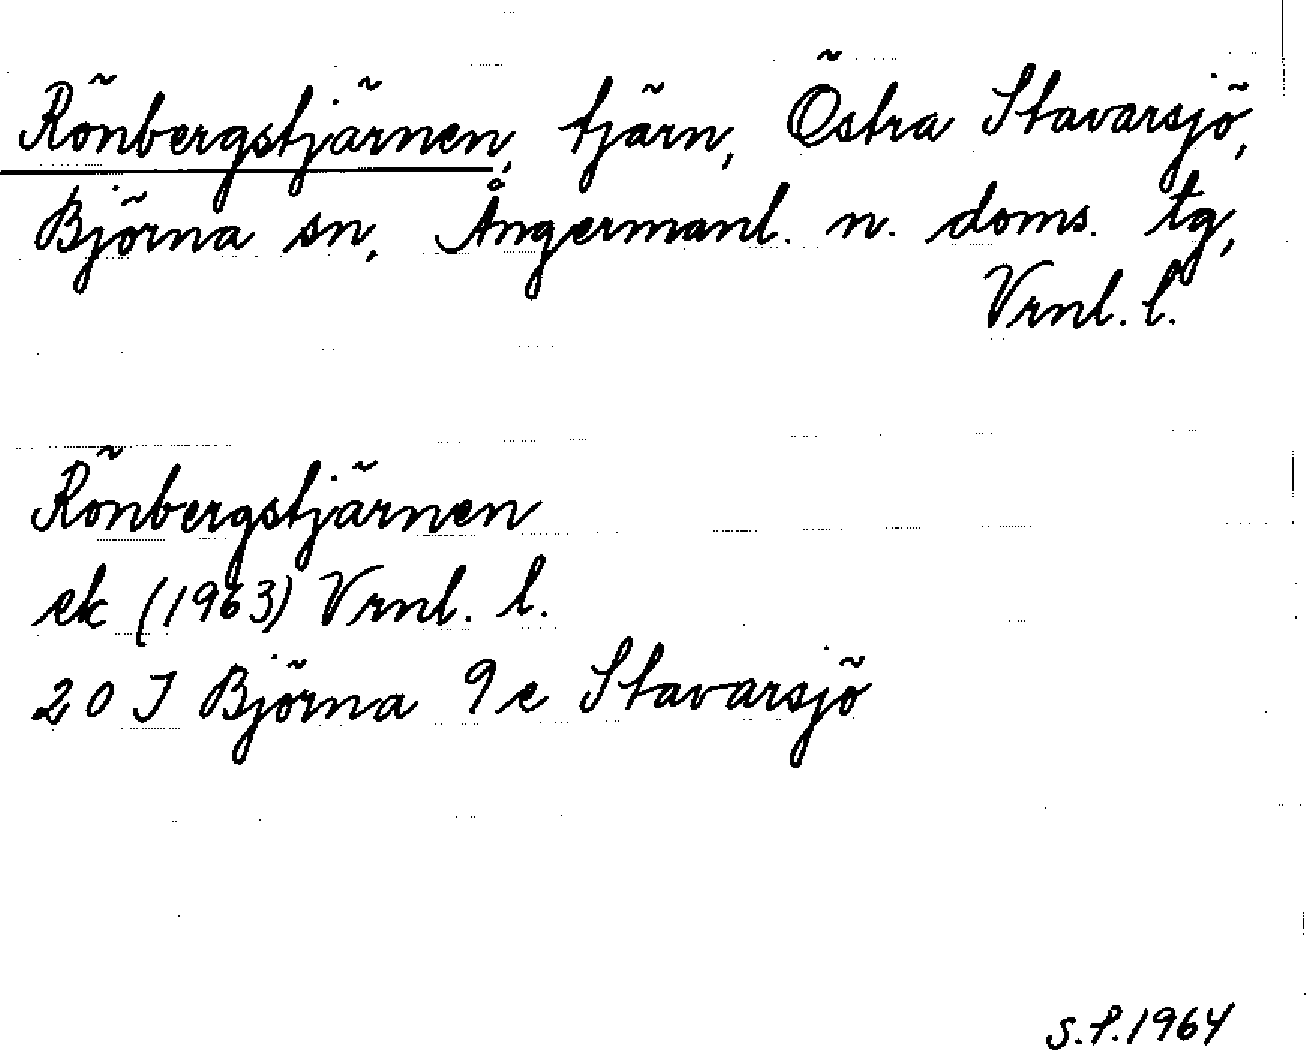 Rönbergstjärnen, tjärn, Östra Stavarsjö,
Björna sn, Ångermanl. n. doms. tg,
Vrnl. l.
Rönbergstjärnen
ek (1963) Vrnl. l.
20 J Björna 9e Stavarsjö
S.P.1964